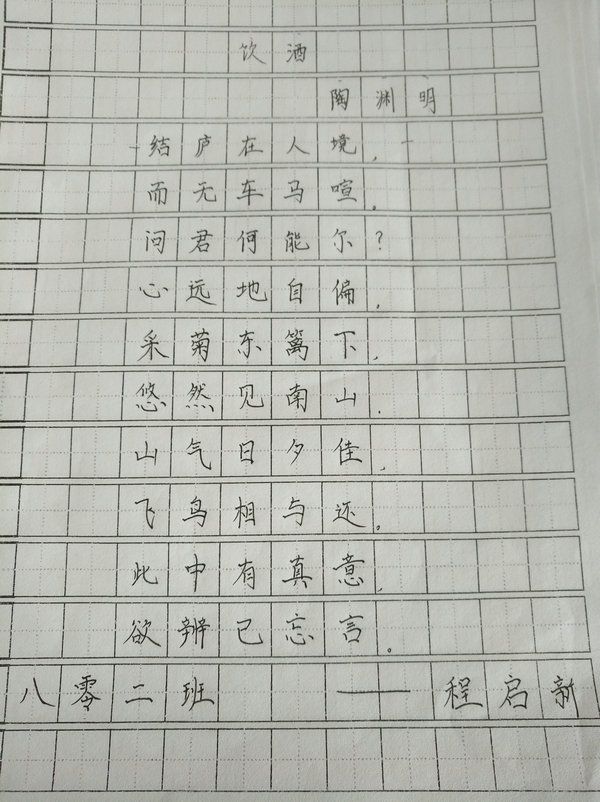 饮酒
陶渊明
结庐在人境，
而无车马喧。
问君何能尔？
心远地自偏，
采菊东篱下，
悠然见南山．
山气日夕佳，
飞鸟相与还。
此中有真意，
欲辨已忘言。
八零二班 —— 程启新